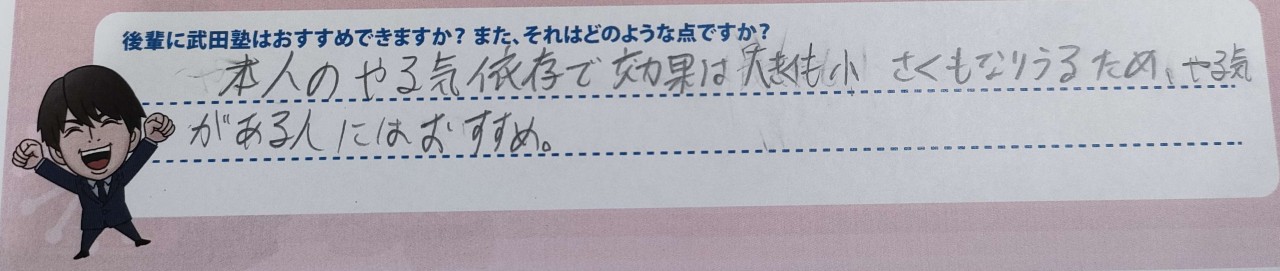 後輩に武田塾はおすすめできますか？また、それはどのような点ですか？
本人のやる気依存で効果は大きくも小さくもなりうるため、やる気
がある人にはおすすめ。